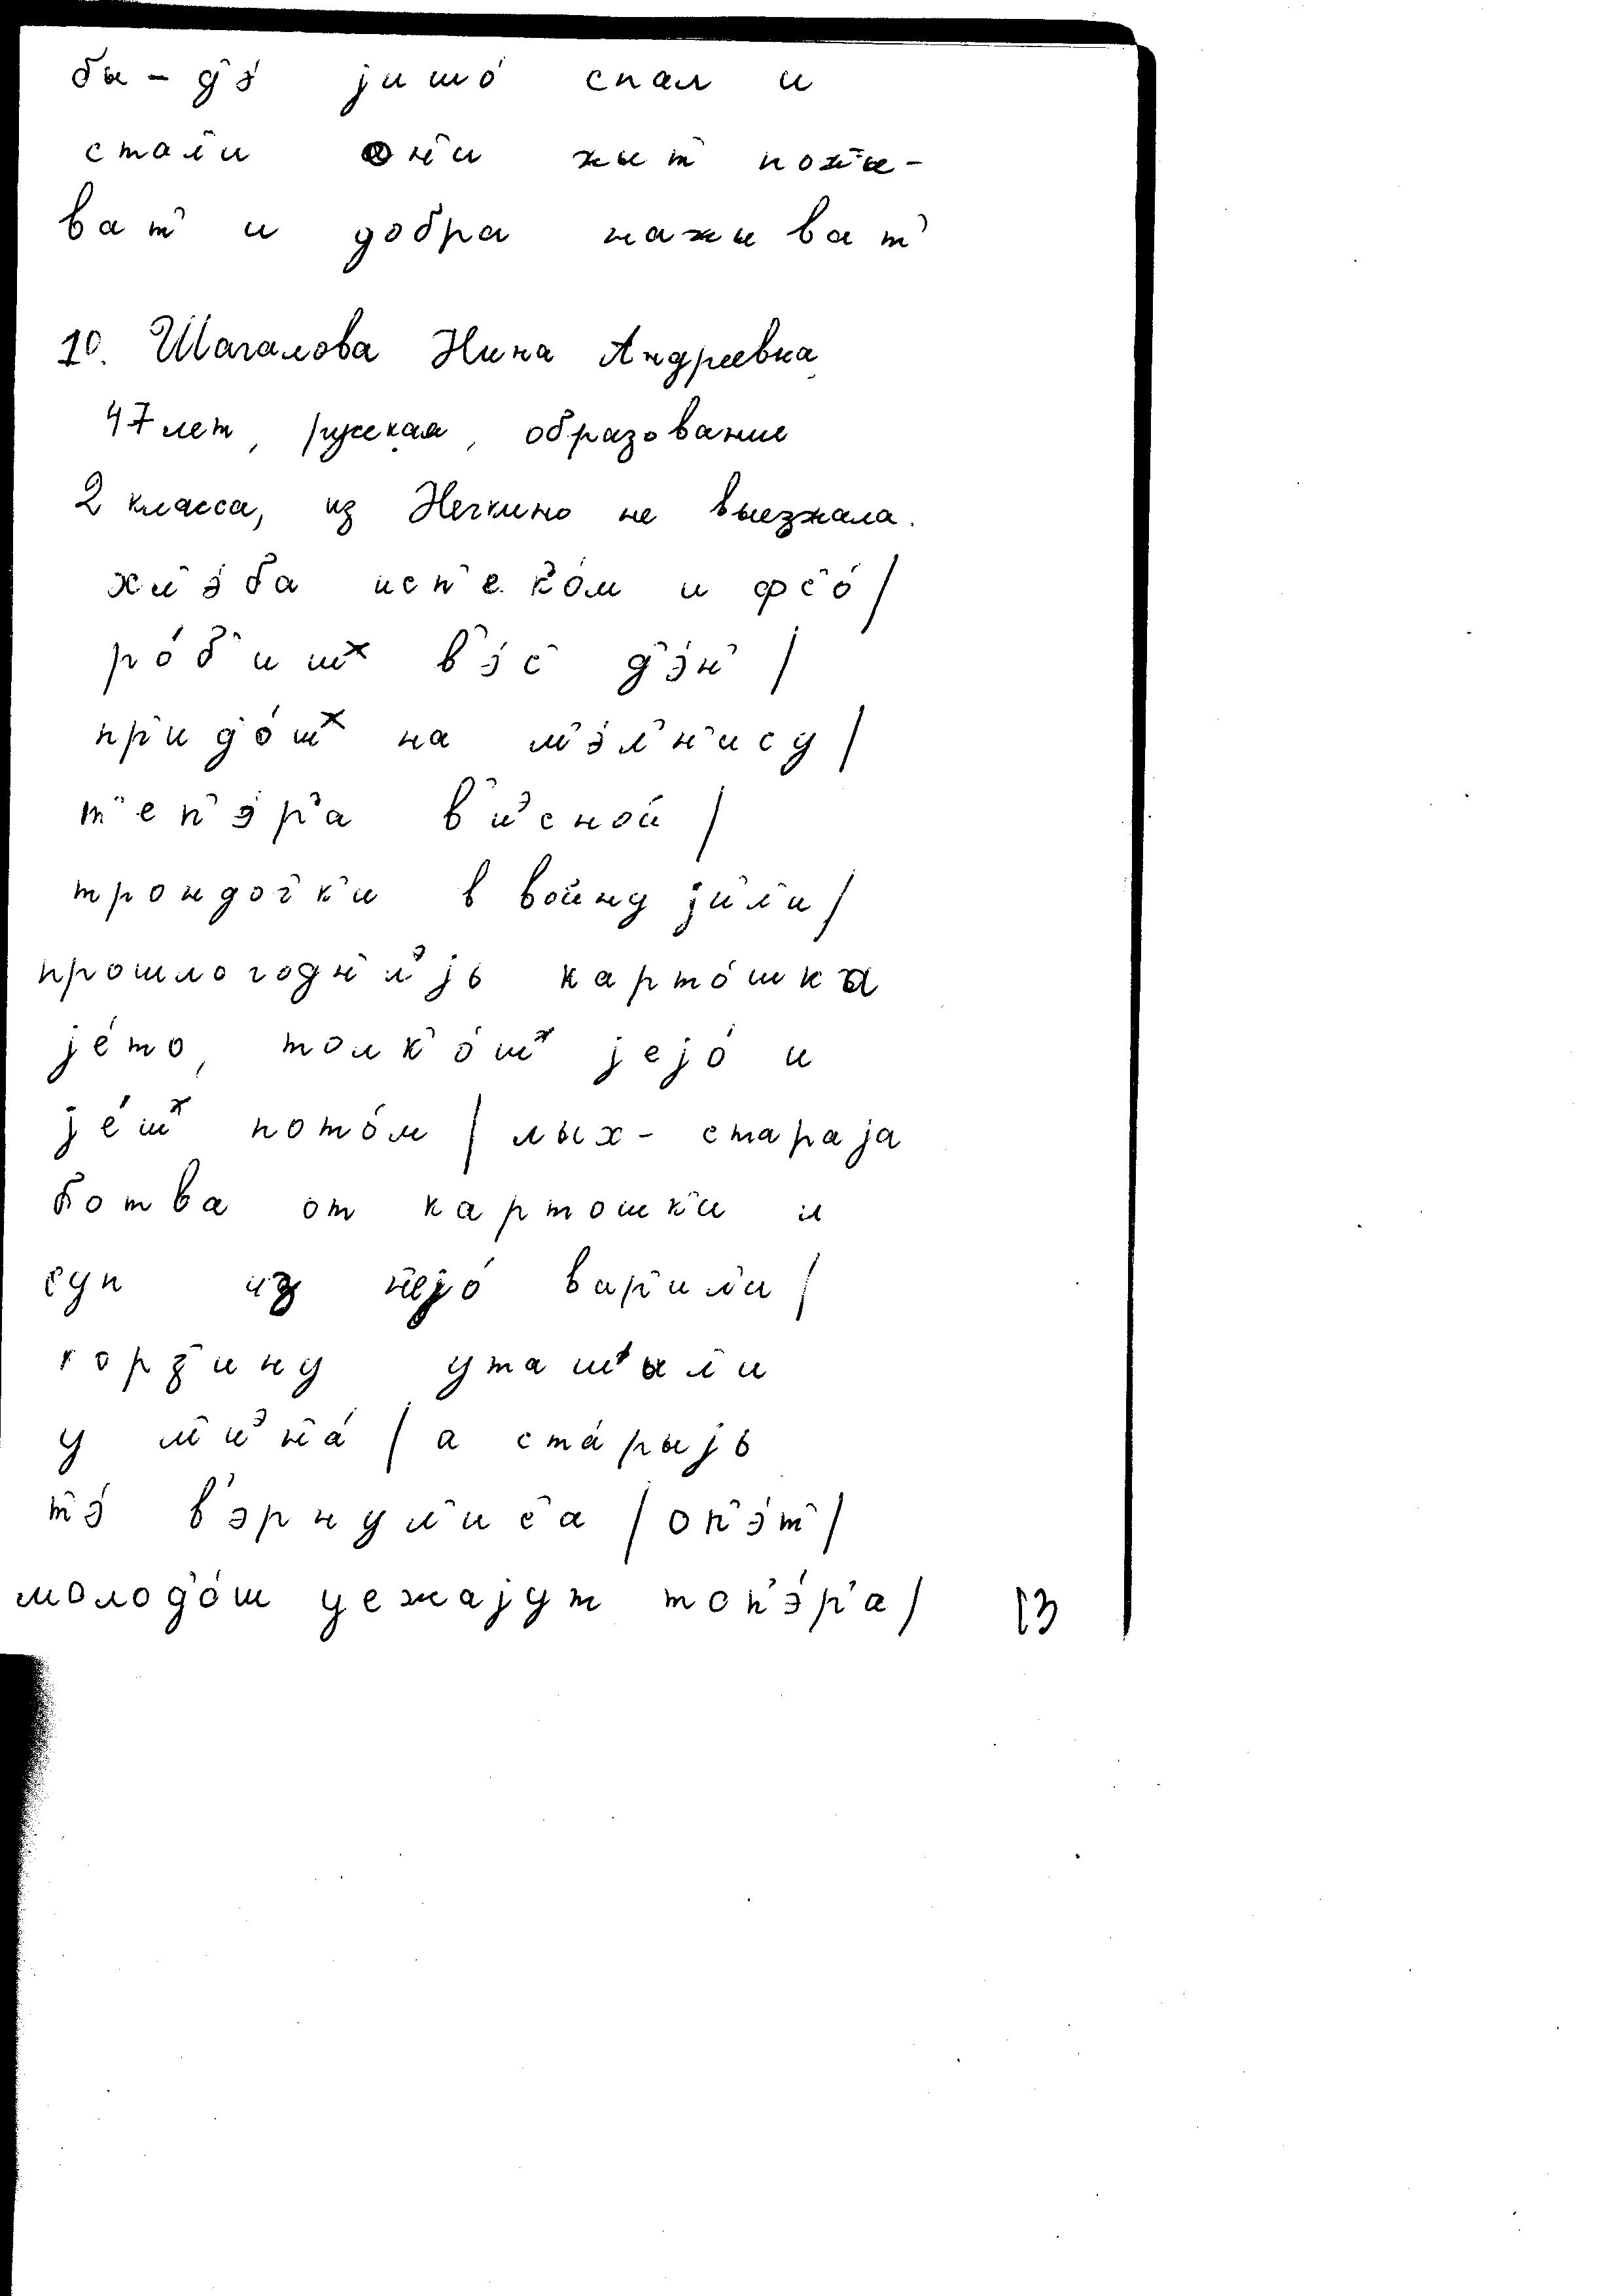 бы - д'э́ јишо́ спал и
стал'и он'и жыт' пожы-
ват' и добра нажыват'
10. Шагалова Нина Андреевна
47 лет, русская, образование
2 класса, из Нечкино не выезжала.
хл'э́ба исп'ек'о́м и фс'о́ /
ро́б'иш͏ˣ в'э́с' д'э́н' /
пр'ид'о́шˣ на м'э́л'н'ису /
т'еп'э́р'а в'иᵊсной /
трондоч'к'и в войну јил'и /
прошлогодн'иᵊјь карто́шка
је́то, толк'о́шˣ јејо́ и
је́шˣ пото́м / лых - стараја
ботва от картошк'и и
суп из н'ејо́ вар'ил'и /
горз'ину уташшыл'и
у м'иᵊн'а́ / а ста́рыјь
т'э́ в'эрнул'ис'а / оп'э́т' /
молод'о́ш уежајут топ'э́р'а /
13